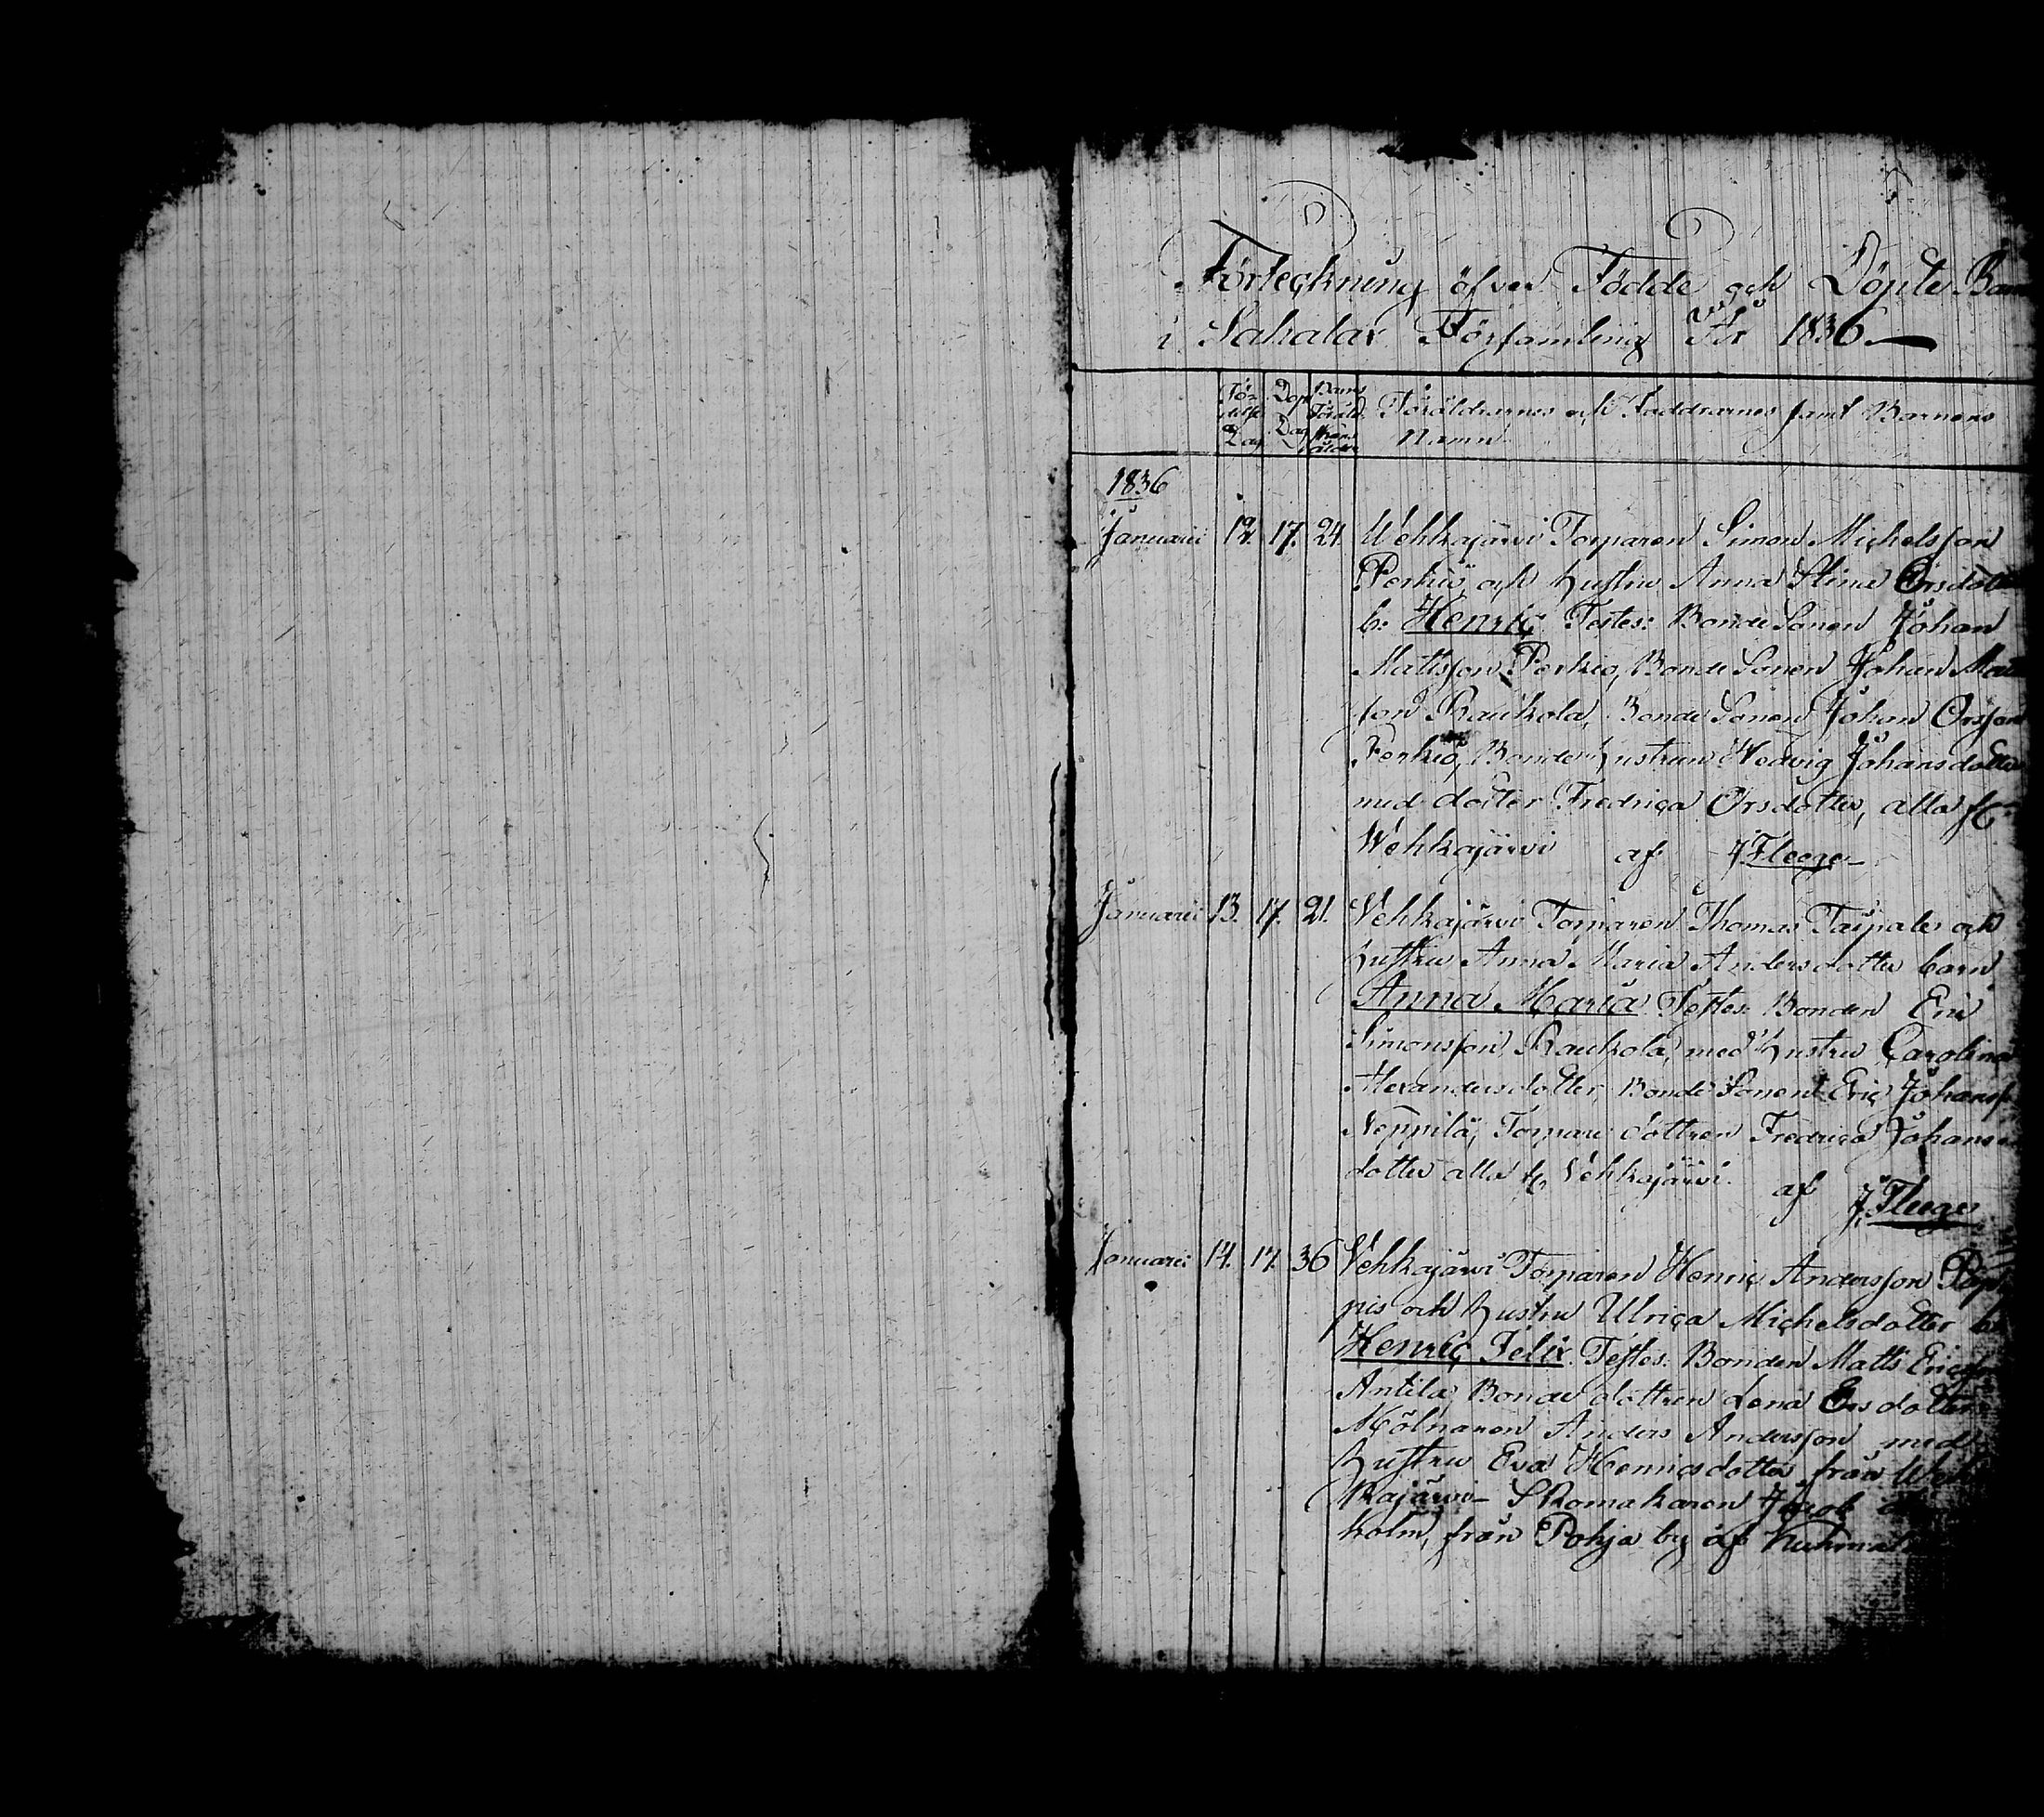 Förteckning öfver Födde och Döpte Barn
i Sahalax Församling År 1836
Fö-
delse
Dag
Dop
Dag
Barns
Föräld.
ålder
Föräldrarnes och Faddrarnes samt Barnens
Namn
1836
Januarii 12. 17. 24. Wehkajärvi Torparen Simon Michelsson
Perkiö och hustru Anna Stina Ersdotter
b: Henric Testes: Bonde Sonen Johan
Mattsson Perkiö, Bonde Sonen Johan
son Raukola, Bonde Sonen Johan Ersson
Perkiö, Bonde hustrun Hedvig Johansdotter
med dotter Fredrica Ersdotter, alla fr:
Wehkajärvi af J Fleege
Januarii 13. 17. 21. Vehkajärvi Torparen Thomas Taipale och
hustru Anna Maria Andersdotter barn
Anna Maria Testes: Bonden Eric
Simonsson Raukola, med hustru Carolina
Alexandersdotter, Bonde Sonen Eric Johanss
Neppilä, Torpare dottren Fredrica Johans
dotter alla fr Vehkajärvi. af J. Fleege
Januarii 14. 17. 36 Vehkajärvi Torparen Henric Andersson
pis och hustru Ulrica Michelsdotter b:
Henric Felix. Testes: Bonden Matts Ericss
Antila, Bonde dottren Lena Ersdotter
Mölnaren Anders Andersson med
hustru Eva Henricsdotter från Weh
kajärvi- Skomakaren Jacob
holm, från Pohja by af